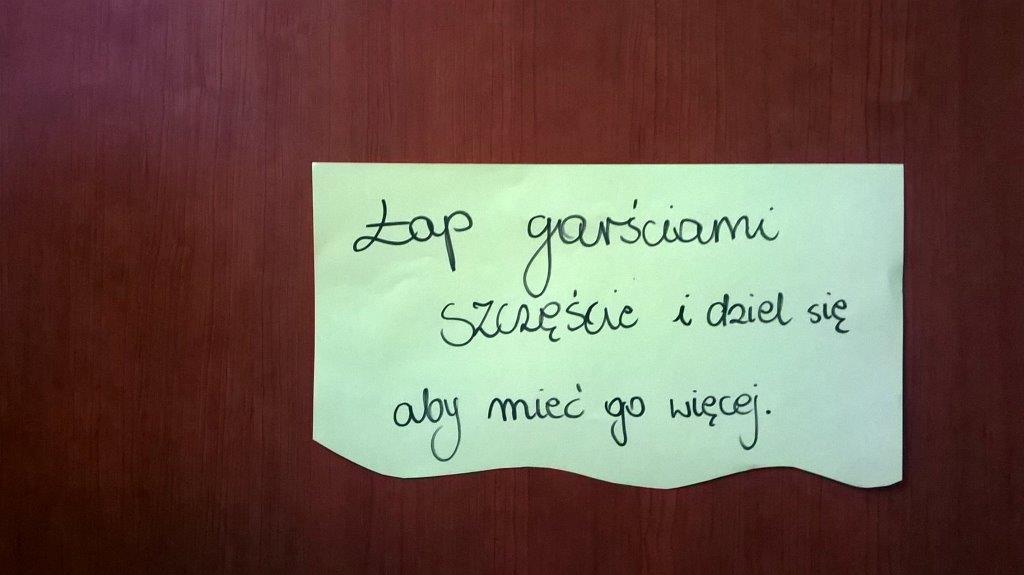 Łap garściami
szczęście i dziel się
aby mieć go więcej.